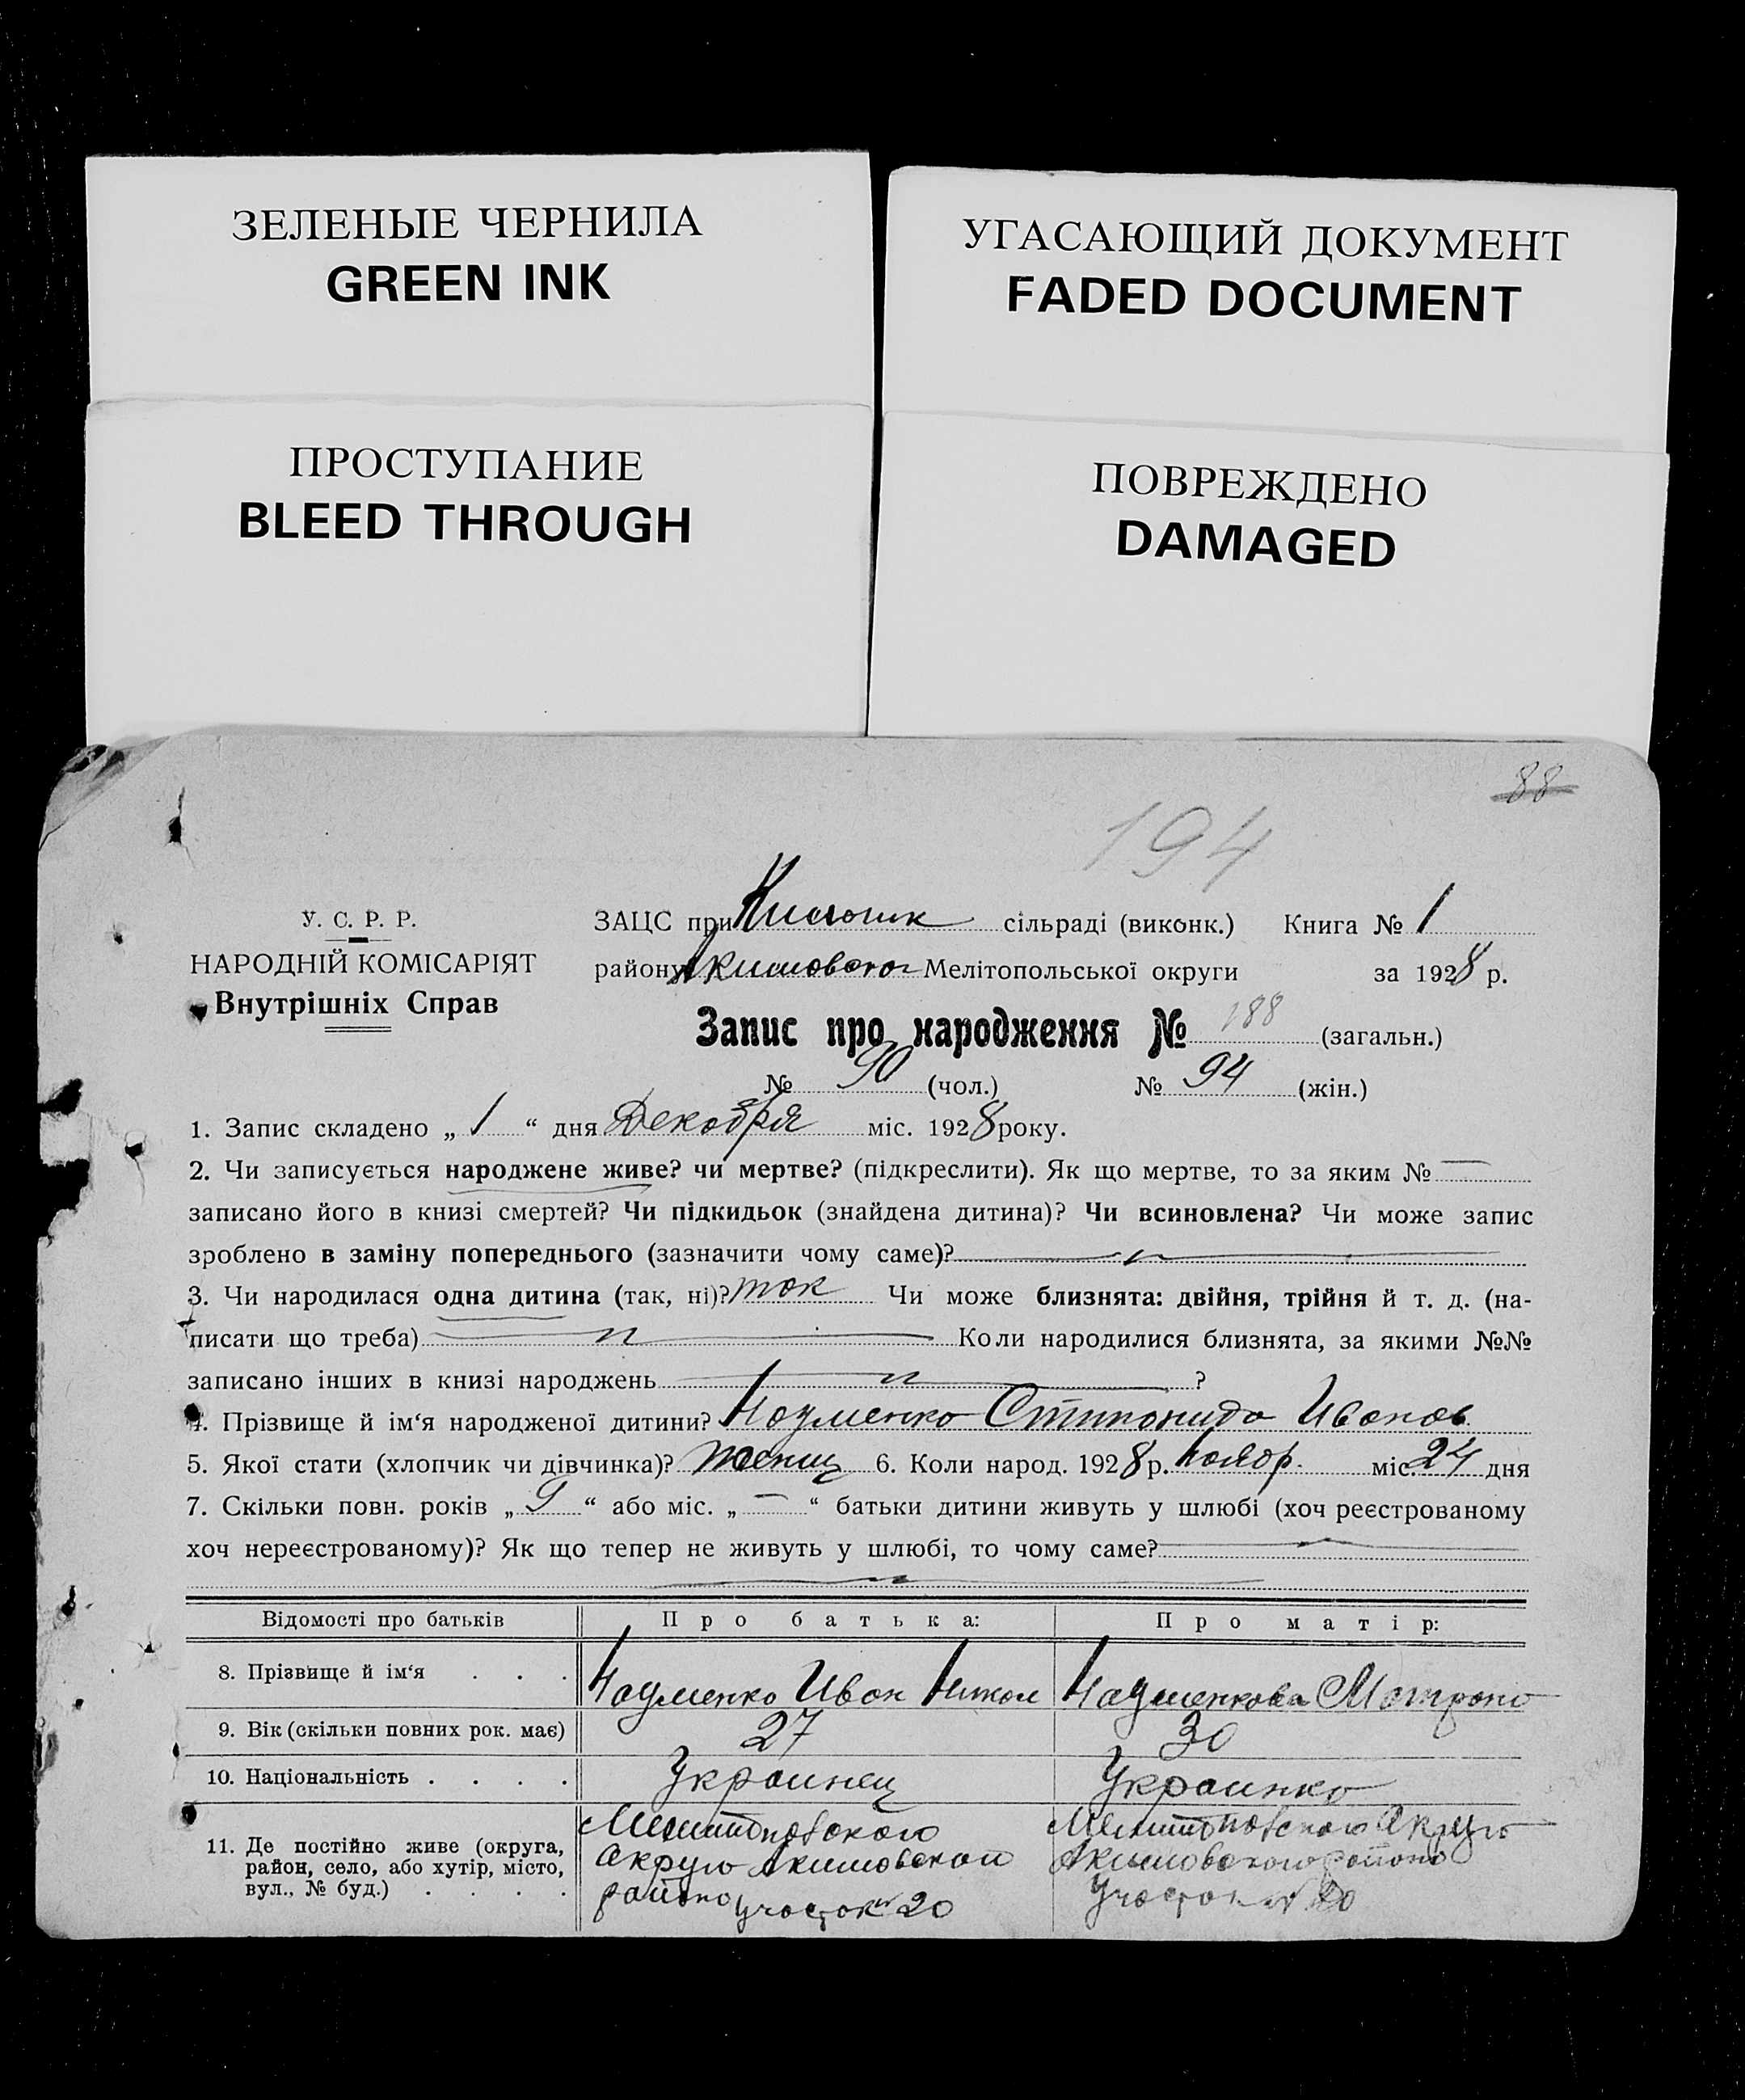 ЗЕЛЕНЫЕ ЧЕРНИЛА
GREEN INK
УГАСАЮЩИЙ ДОКУМЕНТ
FADED DOCUMENT
ПРОСТУПАНИЕ
BLEED THROUGH
ПОВРЕЖДЕНО
DAMAGED
88
194
У. С. Р. Р.
НАРОДНІЙ КОМІСАРІЯТ
Внутрішніх Справ
ЗАЦС при сільраді (виконк.) Книга № 1
району Акимовског Мелітопольської округи за 1928 р.
Запис про народження № 188 (загальн.)
№ 90 (чол.) № 94 (жін.)
1. Запис складено „ 1 “ дня Декабря міс. 1928 року.
2. Чи записується народжене живе? чи мертве? (підкреслити). Як що мертве, то за яким № —
записано його в книзі смертей? Чи підкидьок (знайдена дитина)? Чи всиновлена? Чи може запис
зроблено в заміну попереднього (зазначити чому саме)?
3. Чи народилася одна дитина (так, ні)? так Чи може близнята: двійня, трійня й т. д. (на-
писати що треба) Коли народилися близнята, за якими №№
записано інших в книзі народжень ?
4. Прізвище й ім‘я народженої дитини? Науменко Степонида Иванов
5. Якої стати (хлопчик чи дівчинка)? женщ 6. Коли народ. 1928 р. Ноябр. міс. 24 дня
7. Скільки повн. років „ 9 “ або міс. „ — “ батьки дитини живуть у шлюбі (хоч реєстрованому
хоч нереєстрованому)? Як що тепер не живуть у шлюбі, то чому саме?
Відомості про батьків Про батька: Про матір:
8. Прізвище й ім‘я . . . Науменко Иван Никол Науменкова Матрона
9. Вік (скільки повних рок. має) 27 30
10. Національність . . . . Украинец Украинка
11. Де постійно живе (округа,
район, село, або хутір, місто,
вул., № буд.) . . . .
Мелитоповского
Акруга Акимовскаи
района участок № 20
Мелитоповскаго Акруга
Акимовского района
Участок № 20